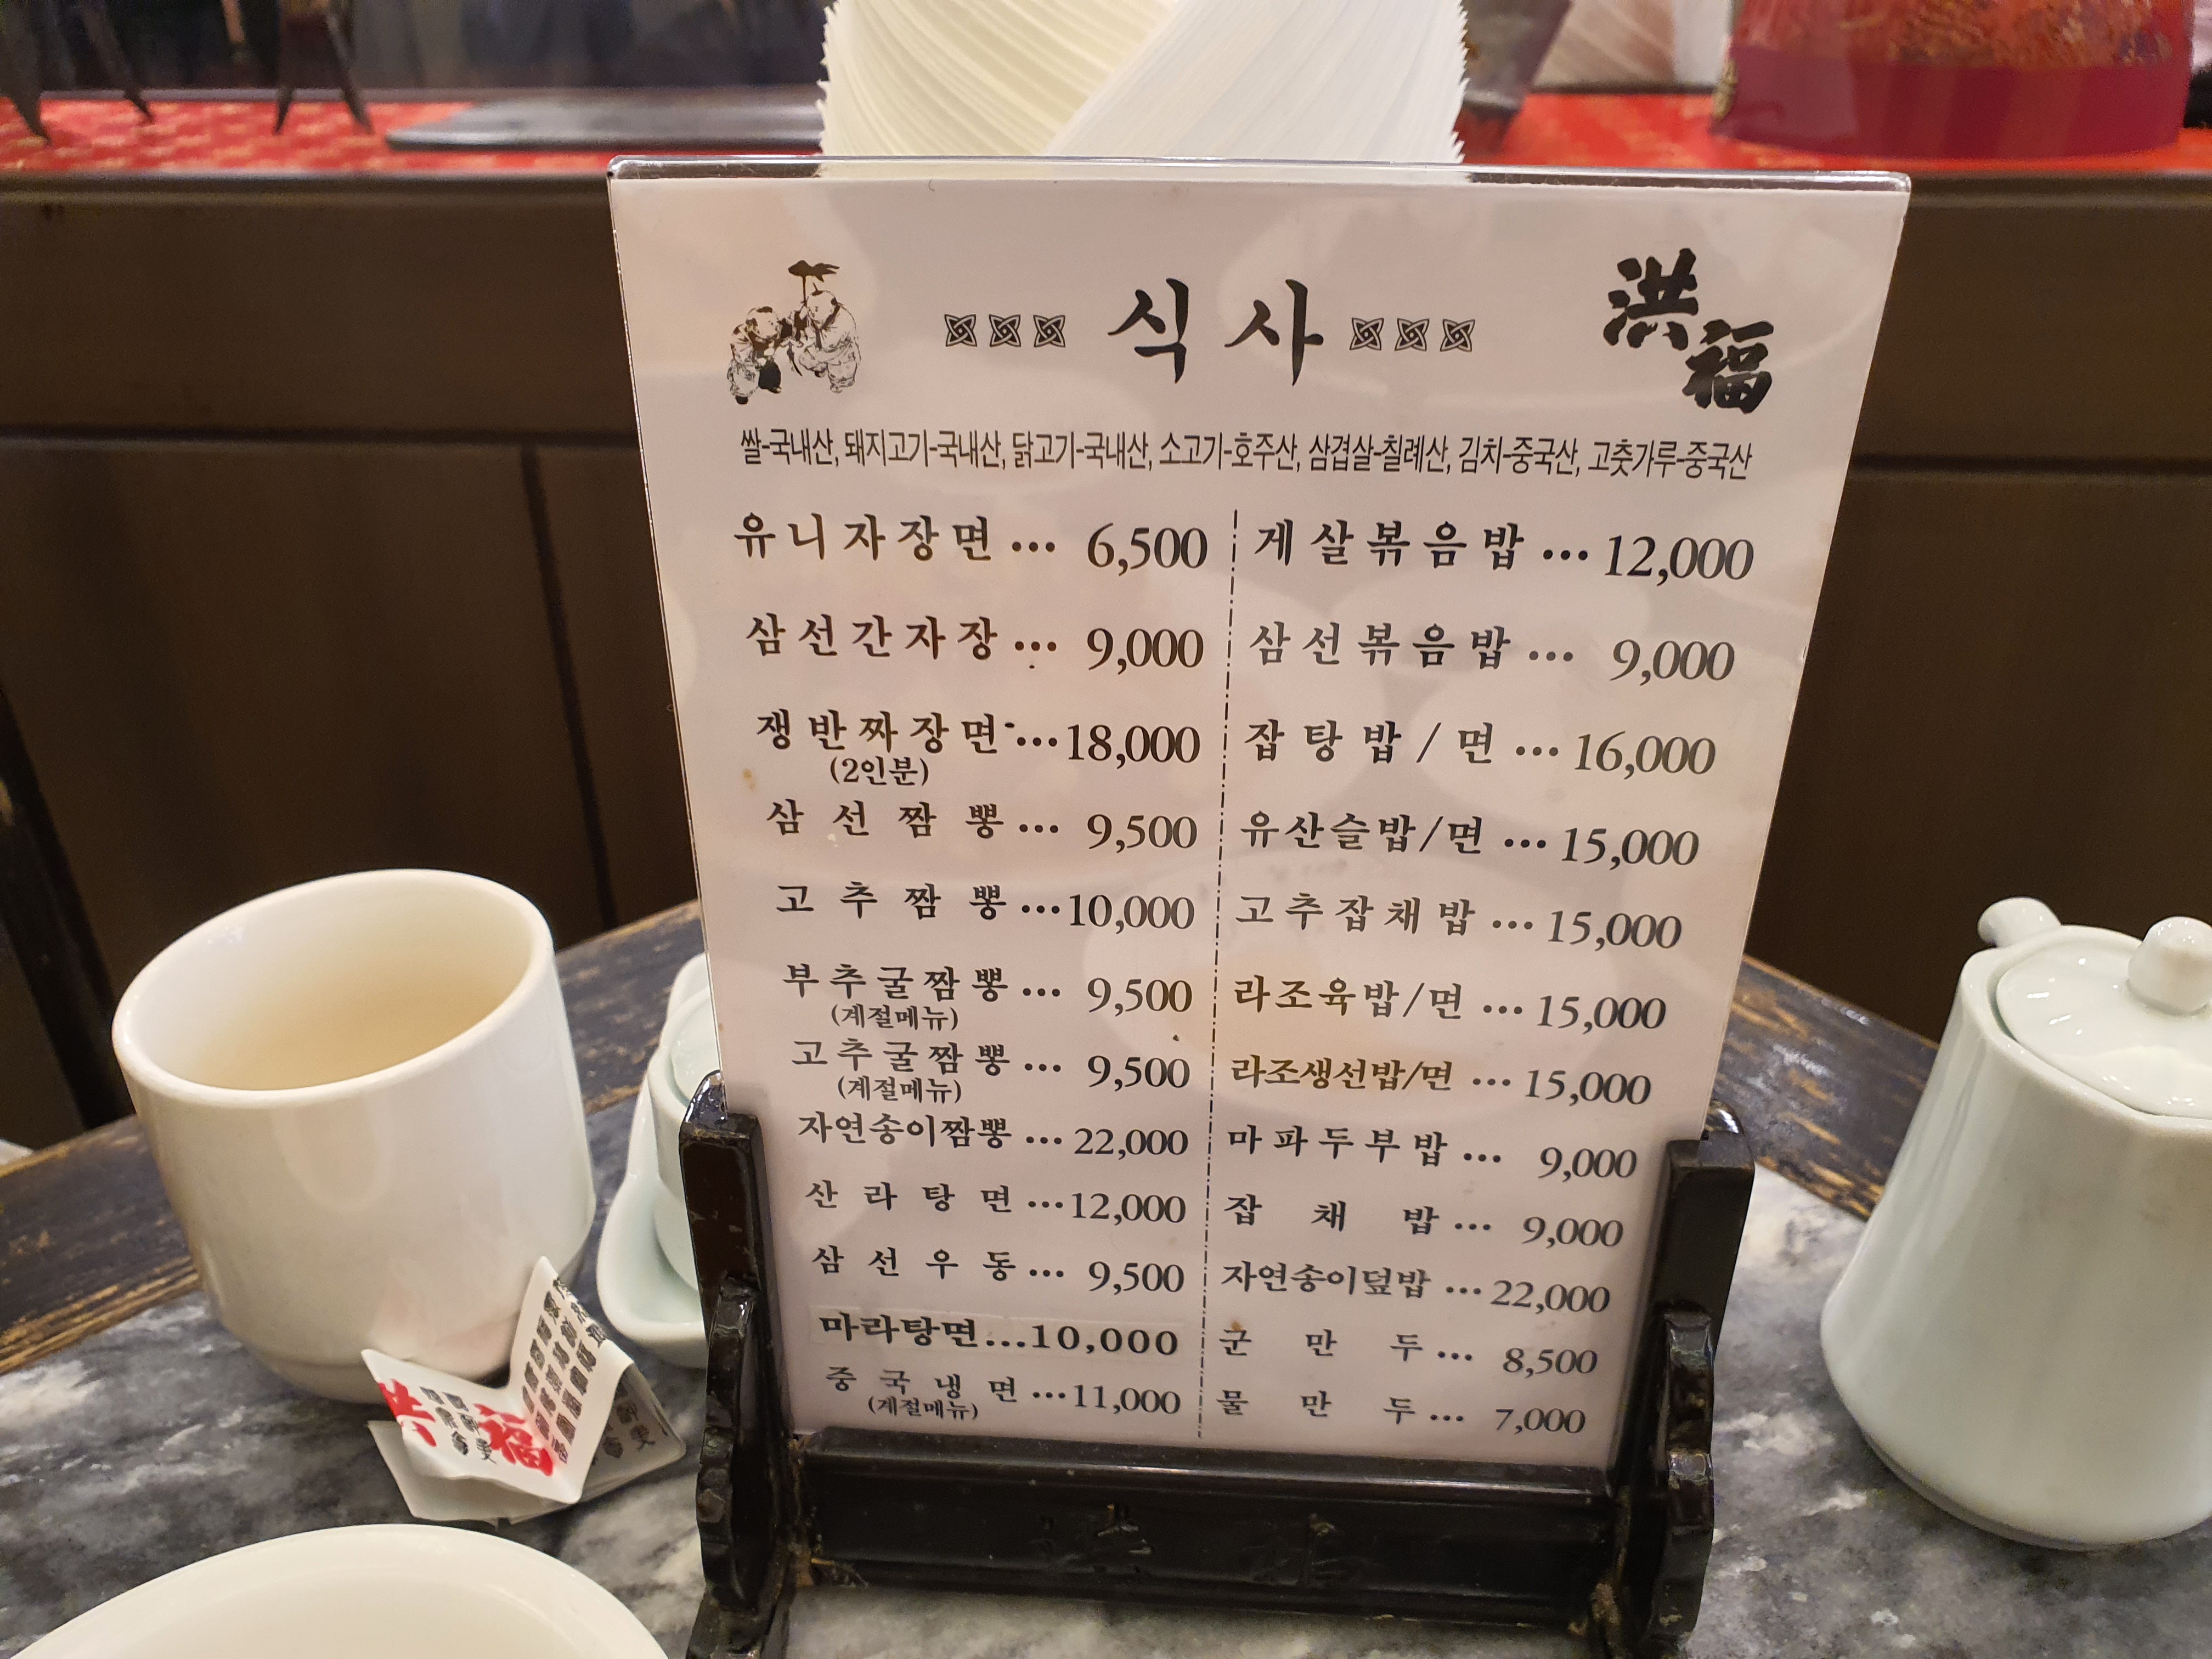 식사
洪福
쌀-국내산, 돼지고기-국내산, 닭고기-국내산, 소고기-호주산, 삼겹살-칠레산, 김치-중국산, 고춧가루-중국산
유니자장면 ... 6,500
삼선간자장 ... 9,000
쟁반짜장면 ... 18,000
(2인분)
삼선짬뽕 ... 9,500
고추짬뽕 ... 10,000
부추굴짬뽕 ... 9,500
(계절메뉴)
고추굴짬뽕 ... 9,500
(계절메뉴)
자연송이짬뽕 ... 22,000
산라탕면 ... 12,000
삼선우동 ... 9,500
마라탕면...10,000
중국냉면 ... 11,000
(계절메뉴)
게살볶음밥 ... 12,000
삼선볶음밥 ... 9,000
잡탕밥/면 ... 16,000
유산슬밥/면 ... 15,000
고추잡채밥 ... 15,000
라조육밥/면 ... 15,000
라조생선밥/면 ... 15,000
마파두부밥 ... 9,000
잡채밥 ... 9,000
자연송이덮밥 ... 22,000
군만두 ... 8,500
물만두 ... 7,000
洪福